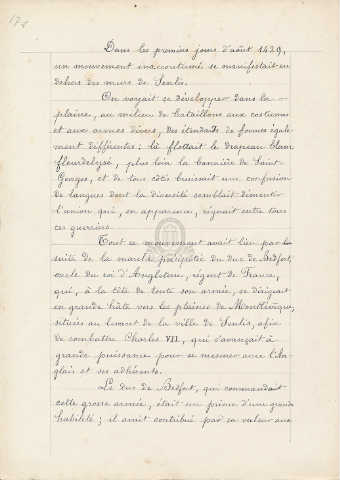 174
Dans les premiers jours d'août 1429,
un mouvement inaccoutumé se manifestait en
dehors des murs de Senlis.
On voyait se développer dans la
plaine, au milieu de bataillons aux costumes
et aux armes divers, des étendards de formes égale-
ment différentes ; là flottait le drapeau blanc
fleurdelysé, plus loin la bannière de Saint-
Georges, et de tous côtés bruissait une confusion
de langues dont la diversité semblait démentir
l'union qui, en apparence, régnait entre tous
ces guerriers.
Tout ce mouvement avait lieu par la
suite de la marche précipitée du duc de Bedfort,
oncle du roi d'Angleterre, régent de France,
qui, à la tête de toute son armée, se dirigeait
en grande hâte vers les plaines de Montlévêque,
situées au levant de la ville de Senlis, afin
de combattre Charles VII, qui s'avançait à
grande puissance pour se mesurer avec l'An-
glais et ses adhérents.
Le duc de Bedfort, qui commandait
cette grosse armée, était un prince d'une grande
habileté ; il avait contribué par sa valeur aux